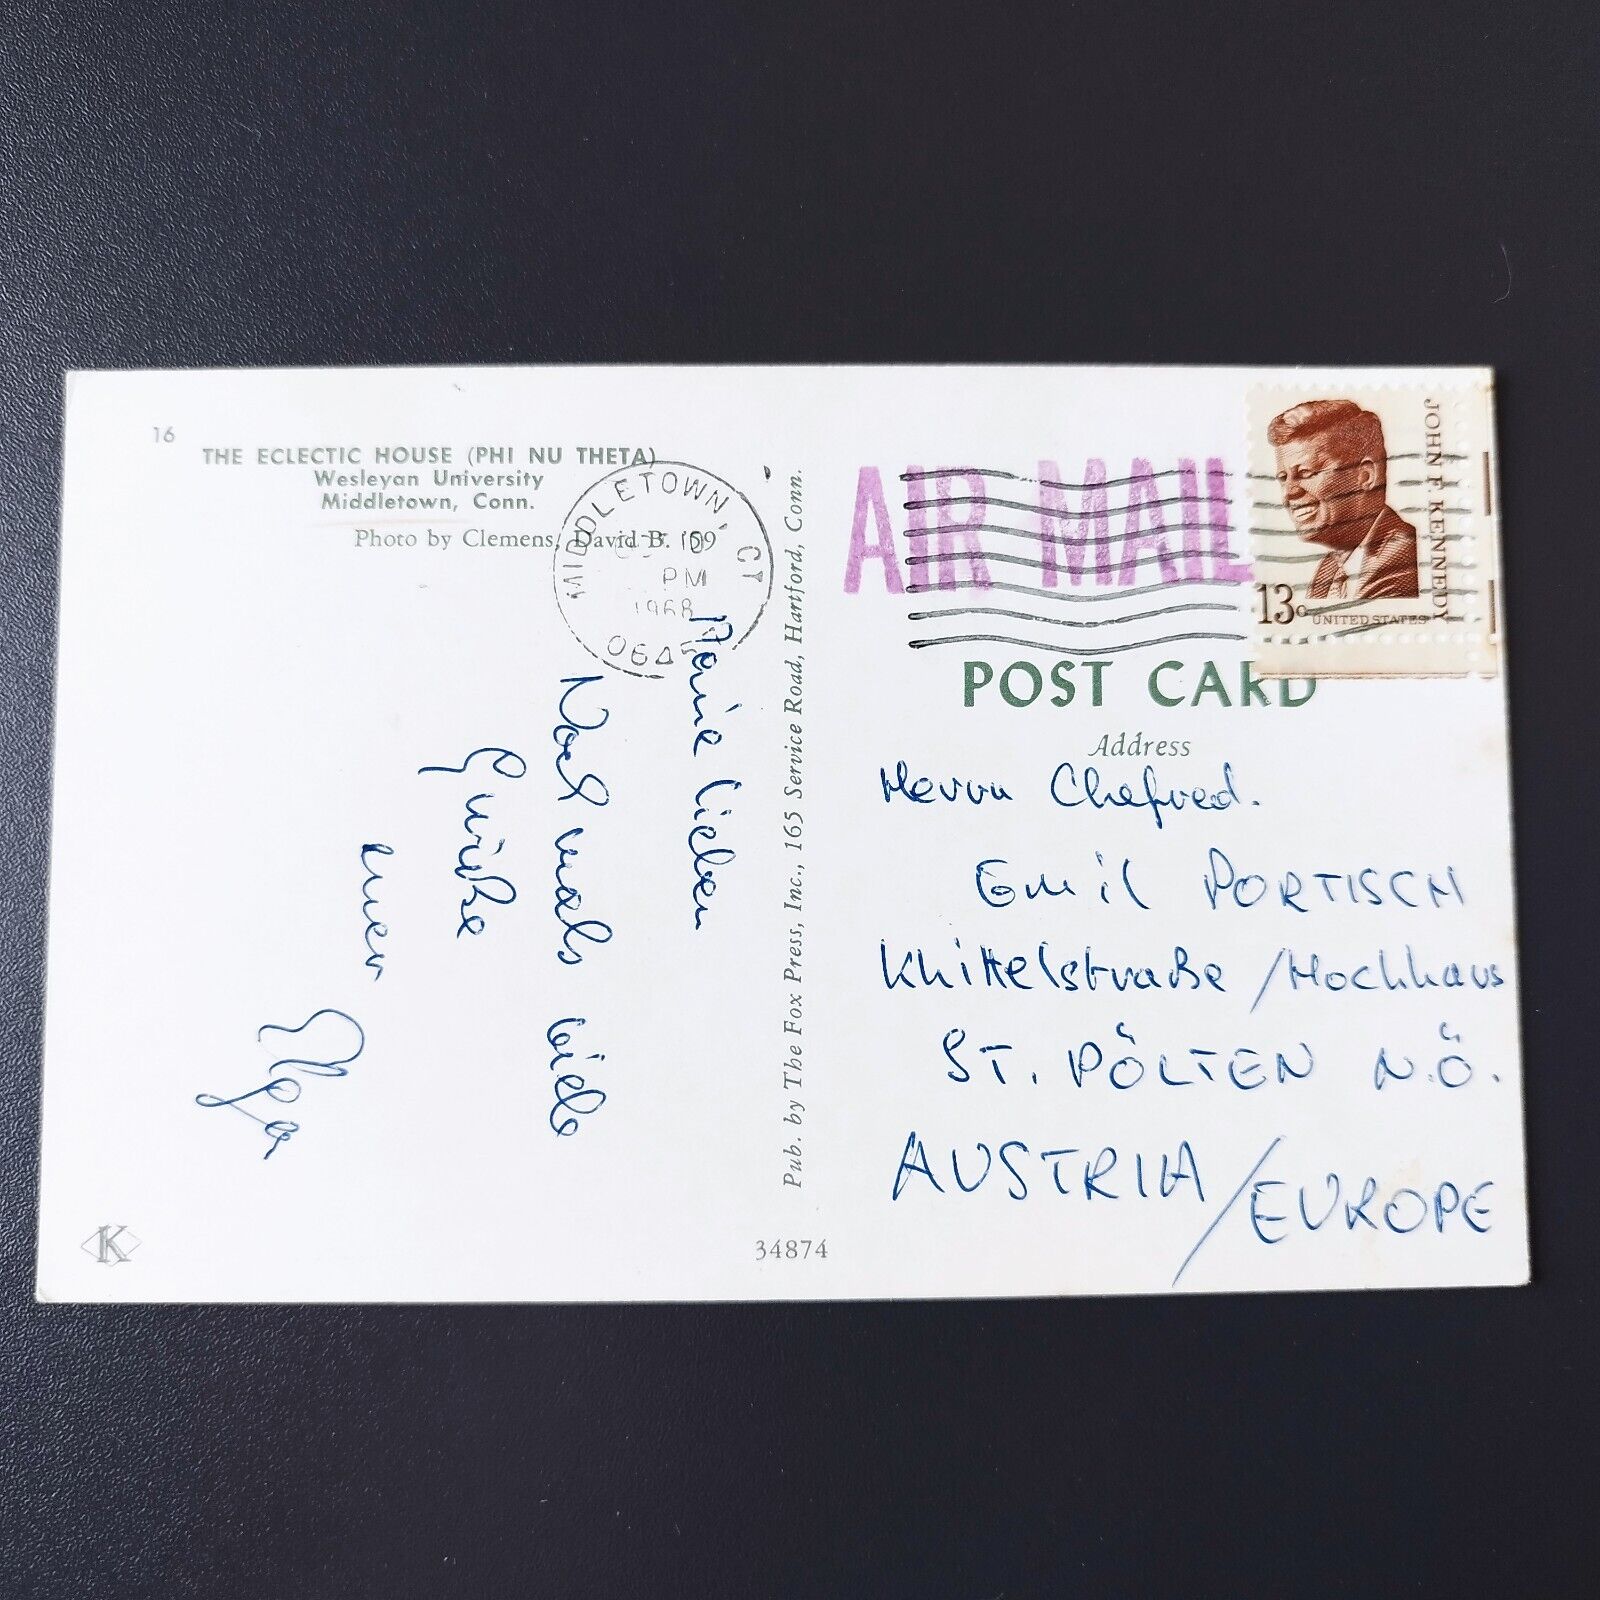 16
THE ECLECTIC HOUSE (PHI NU THETA)
Wesleyan University
Middletown, Conn.
Photo by Clemens, David B. '59
MIDDLETOWN, CT
10
PM
1968
064
Meine Lieben
Nochmals viele
Grüße
euer
Olga
Pub. by The Fox Press, Inc., 165 Service Road, Hartford, Conn.
34874
K
AIR MAIL
JOHN F. KENNEDY
13c
UNITED STATES
POST CARD
Address
Herrn Chefred.
Emil PORTISCH
Knittelstraße / Hochhaus
ST. PÖLTEN N.Ö.
AUSTRIA / EUROPE